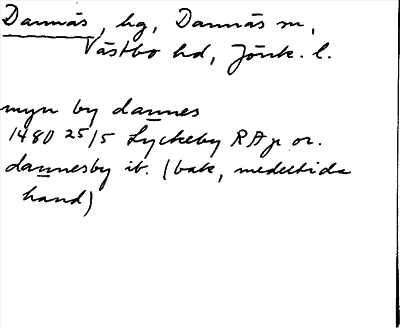 Dannäs, hg, Dannäs sn,
Västbo hd, Jönk. l.
myn by dannes
1480 25/5 Lyckeby RAp or.
dannesby ib. (bak, medeltida
hand)